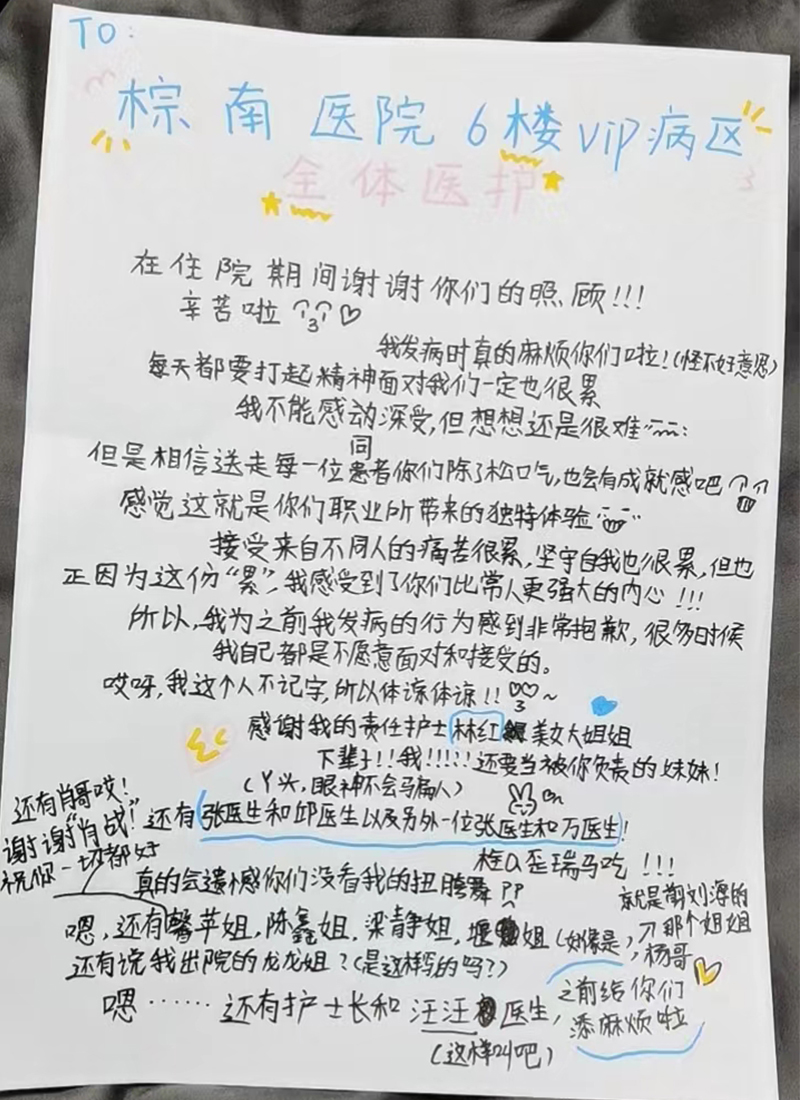 TO:
棕南医院6楼vip病区
全体医护
在住院期间谢谢你们的照顾!!!
辛苦啦
我发病时真的麻烦你们啦!(怪不好意思)
每天都要打起精神面对我们一定也很累
我不能感动深受,但想想还是很难
同
但是相信送走每一位患者你们除了松口气,也会有成就感吧
感觉这就是你们职业所带来的独特体验
接受来自不同人的痛苦很累,坚守自我也很累,但也
正因为这份“累”,我感受到了你们比常人更强大的内心!!!
所以,我为之前我发病的行为感到非常抱歉,很多时候
我自己都是不愿意面对和接受的。
哎呀,我这个人不记字,所以体谅体谅!!~
感谢我的责任护士林红美女大姐姐
下辈子!!我!!!!!还要当被你负责的妹妹!
(丫头,眼神不会马扁人)
还有肖哥哎!
谢谢“肖战”!
祝你一切都好
还有张医生和邱医生以及另外一位张医生和万医生!
栓Q歪瑞马吃!!!
真的会遗憾你们没看我的扭胯舞
就是剪刘海的
那个姐姐
嗯,还有馨苹姐,陈鑫姐,梁静姐,堰姐(好像是),杨哥
还有说我出院的龙龙姐?(是这样写的吗?)
嗯……还有护士长和汪汪医生,
(这样叫吧)
之前给你们
添麻烦啦